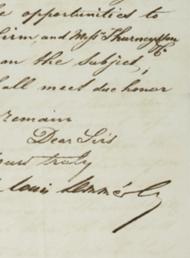 opportunities to
firm, and Messrs Thurneyssen
Co
on the subject,
all meet due honor
remain
Dear Sirs
yours truly
Louis